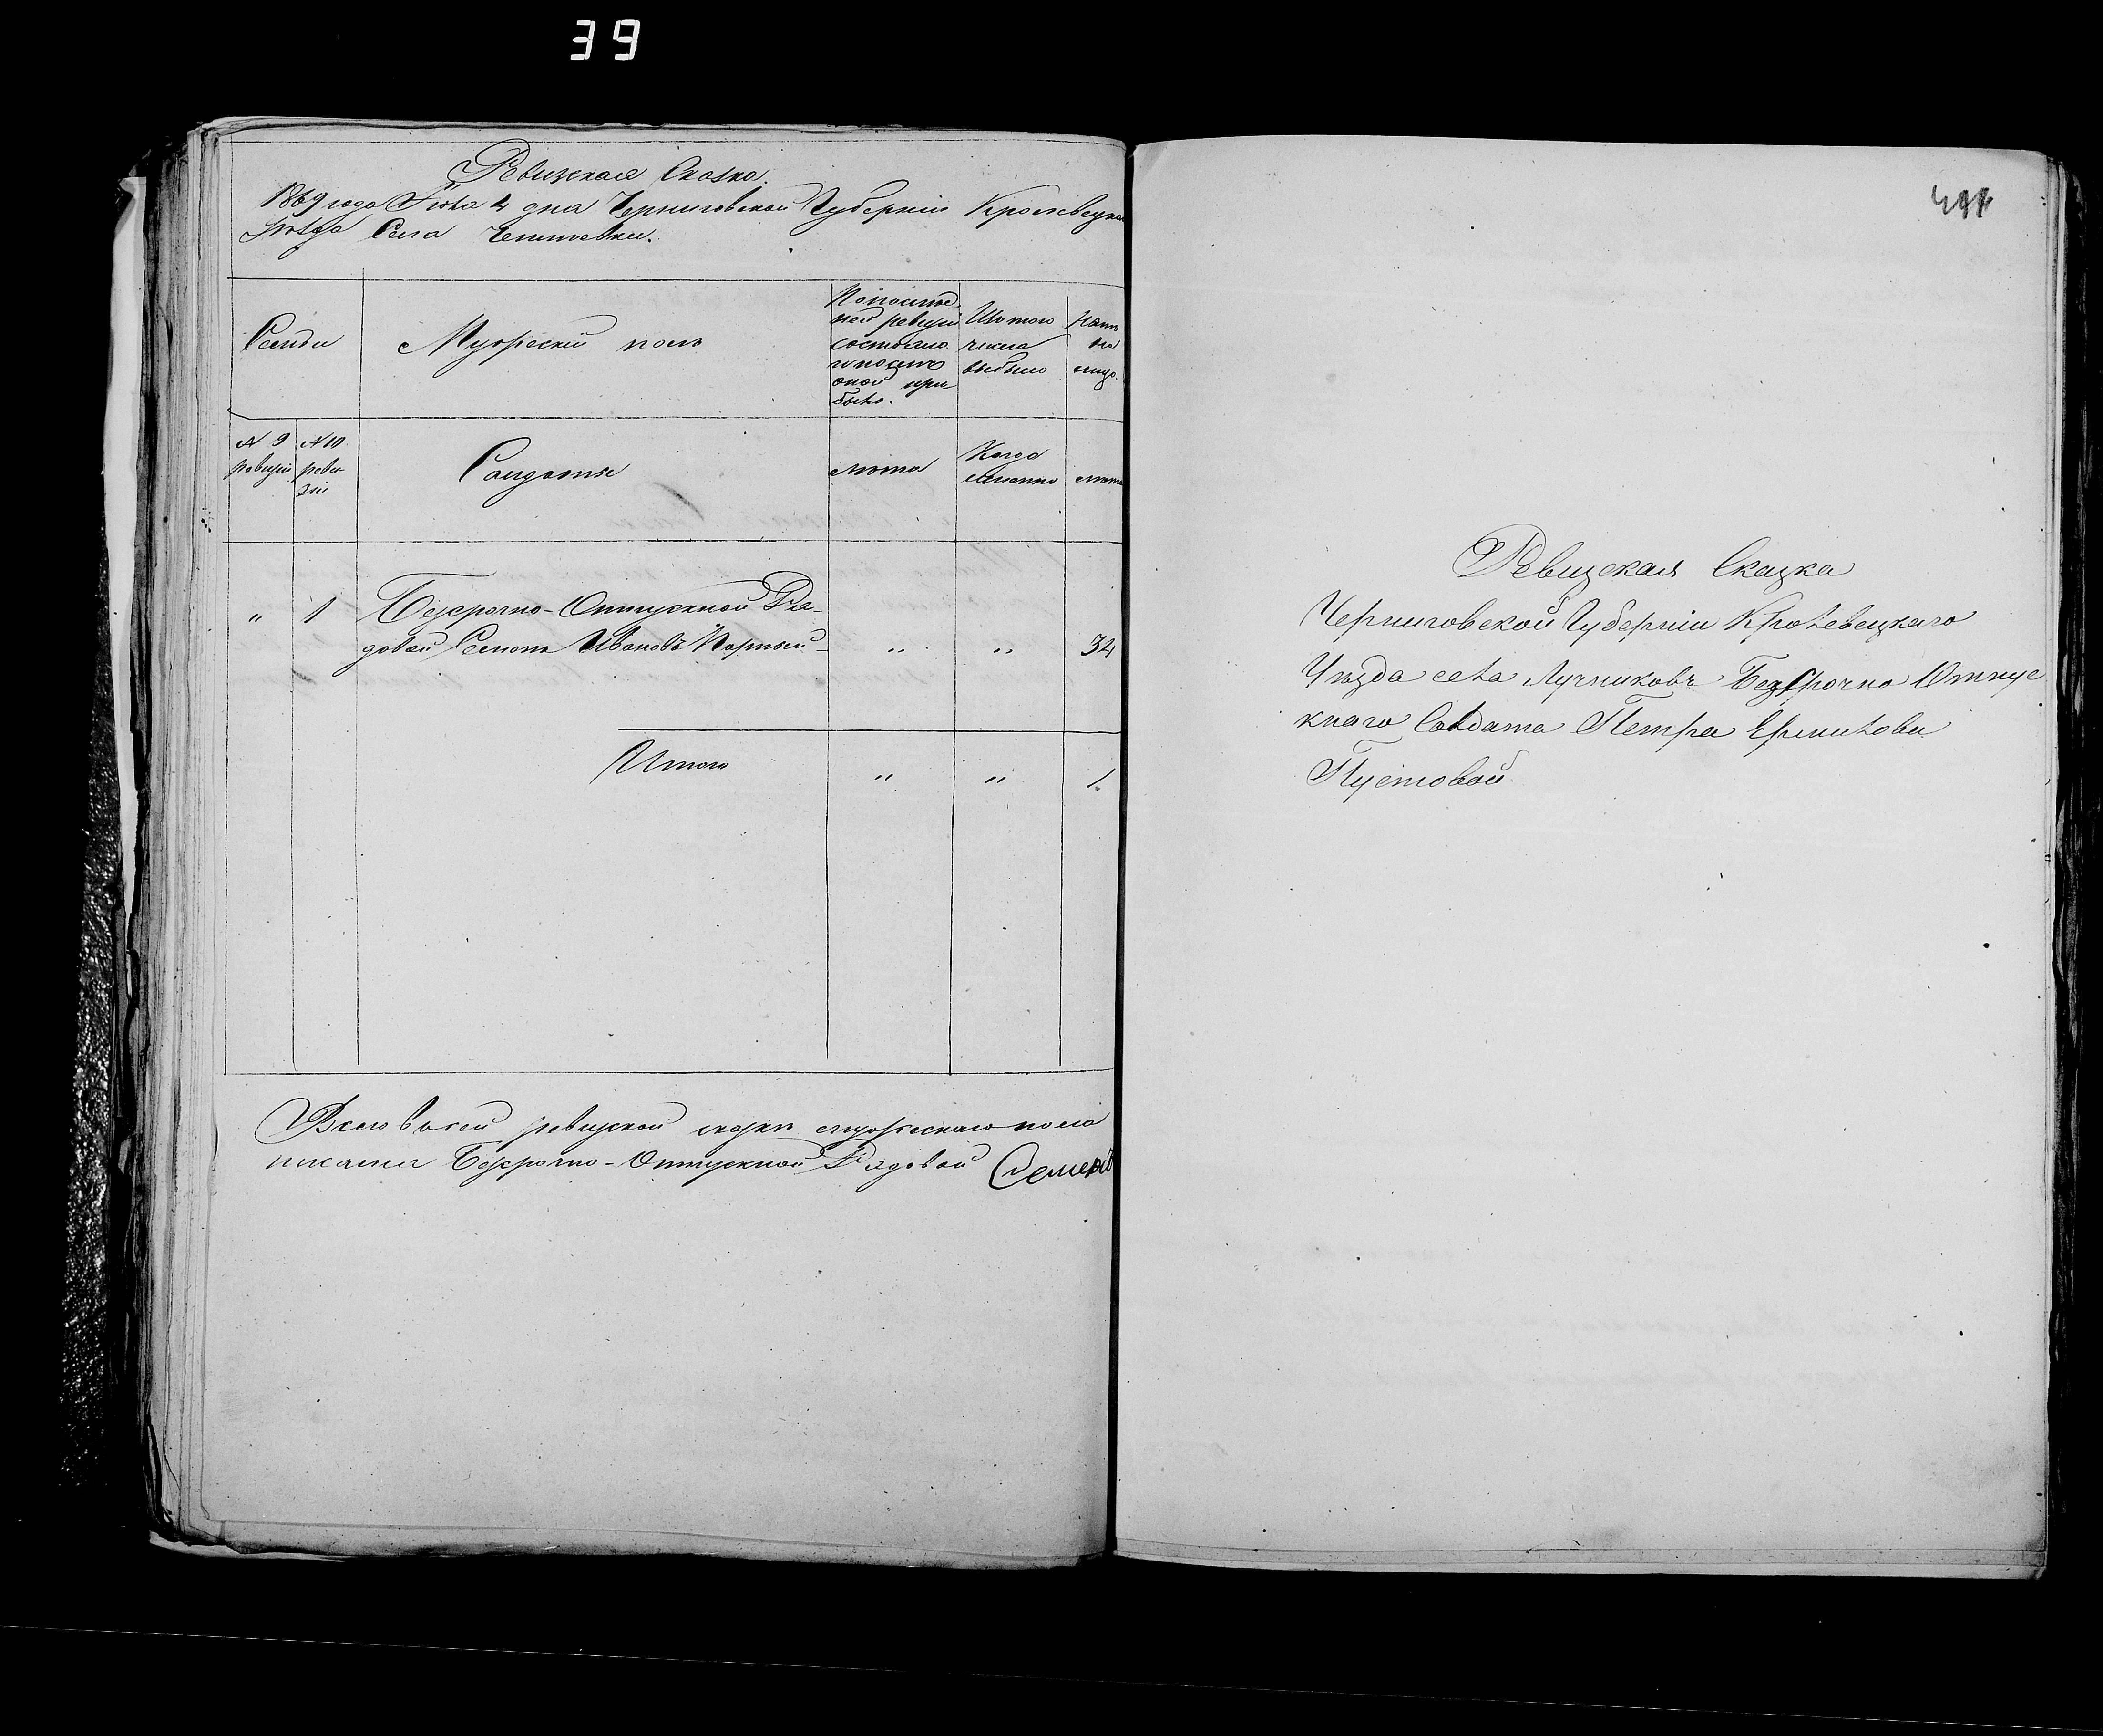 39
Ревизская Сказка.
1869 года Іюля 4 дня Черниговской Губерніи Кролевецкаго
Уѣзда Села
Семьи
Мужескій полъ
По послед-
ней ревизіи
состояло
и послѣ
оной при
было.
Изъ того
числа
выбыло
Нынѣ
на
лицо.
№ 9
ревизіи
№ 10
реви-
зіи
Солдаты
лѣта
Когда
именно
лѣта
" 1 Безсрочно-Отпускной Ря-
довой Семенъ Ивановъ " " 34
Итого " " 1.
Всего въ сей ревизской сказкѣ мужескаго пола
Безсрочно-Отпускной Рядовой Семенъ
Ревизская Сказка
Черниговской Губерніи Кролевецкаго
Уѣзда села Лучниковъ Безсрочно Отпус
кнаго Солдата Петра Ермилова
Пустовой